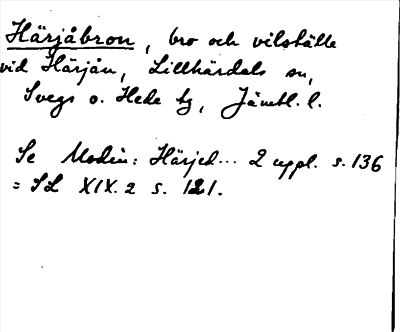 Härjåbron, bro och vilställe
vid Härjån, Lillhärdals sn,
Svegs o. Hede tg, Jämtl. l.
Se Modin: Härjed... 2 uppl. s. 136
= SL XIX. 2 s. 121.